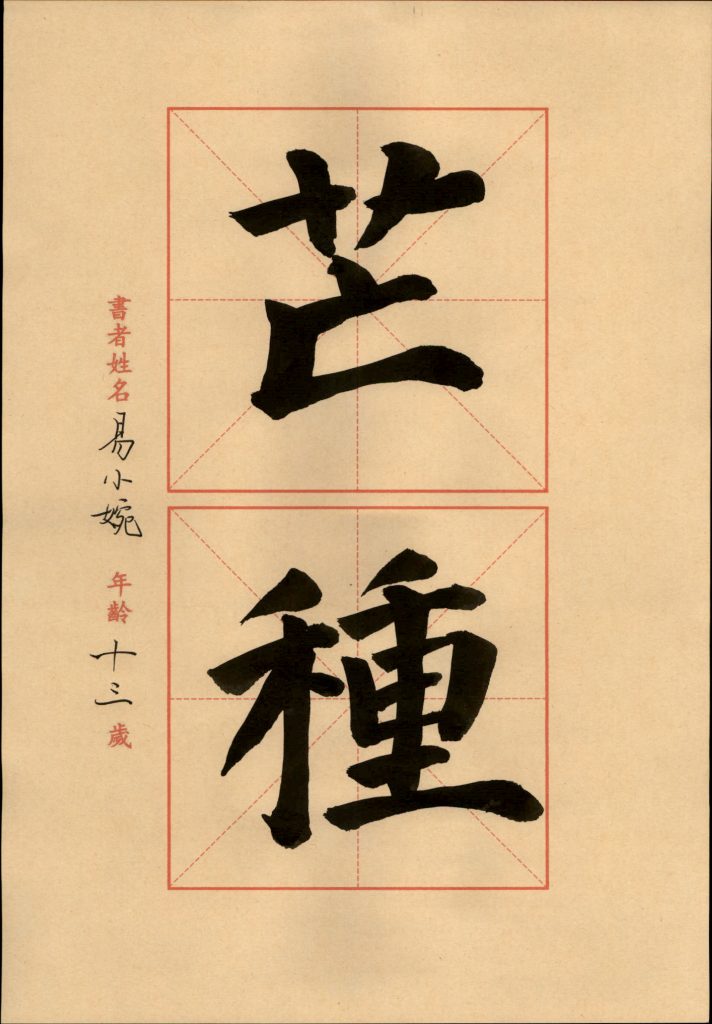 芒種
書者姓名 易小婉 年齡 十三 歲